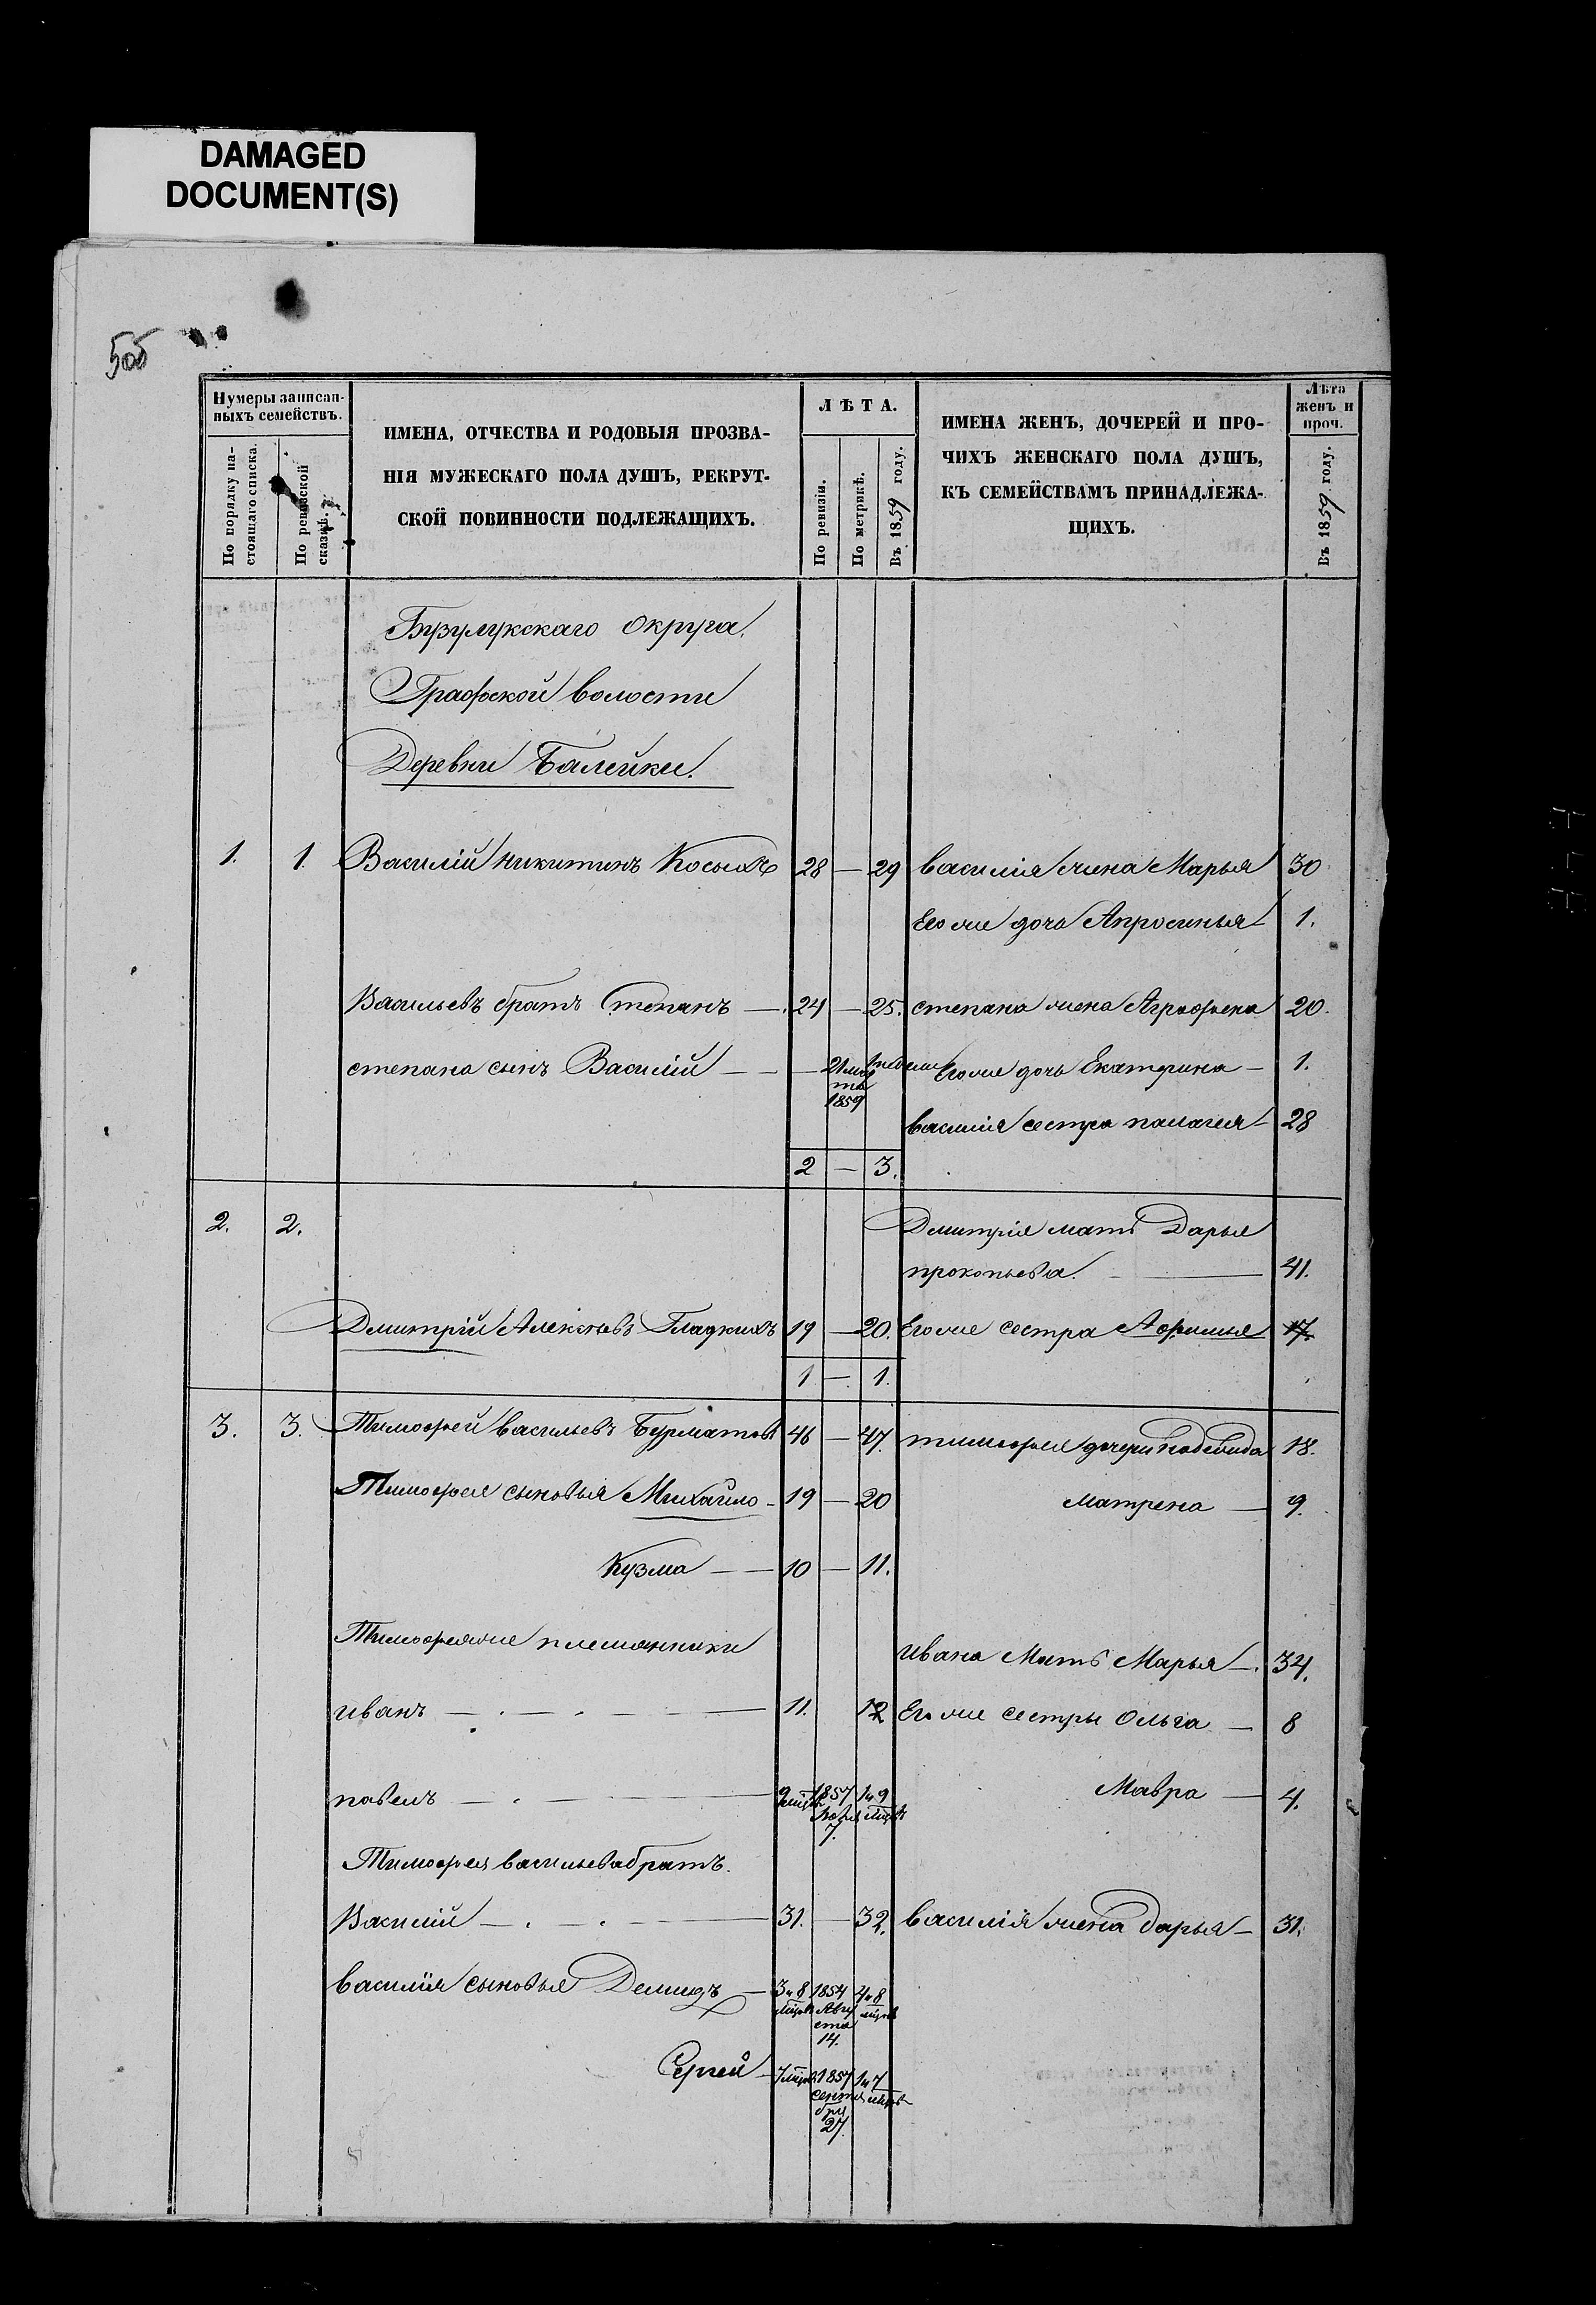 DAMAGED
DOCUMENT(S)
505
Нумеры записан-
ныхъ семействъ.
По порядку на-
стоящаго списка.
По ревизской
сказкѣ.
ИМЕНА, ОТЧЕСТВА И РОДОВЫЯ ПРОЗВА-
НІЯ МУЖЕСКАГО ПОЛА ДУШЪ, РЕКРУТ-
СКОЙ ПОВИННОСТИ ПОДЛЕЖАЩИХЪ.
ЛѢТА.
По ревизіи.
По метрикѣ.
Въ 1859 году.
ИМЕНА ЖЕНЪ, ДОЧЕРЕЙ И ПРО-
ЧИХЪ ЖЕНСКАГО ПОЛА ДУШЪ,
КЪ СЕМЕЙСТВАМЪ ПРИНАДЛЕЖА-
ЩИХЪ.
Лѣта
женъ и
проч.
Въ 1859 году.
Бузулукскаго округа.
Графской волости
Деревни Балейки.
1. 1. Василій никитинъ Косыхъ 28 — 29 василія жена Марья 30
Его же дочь Апросинья 1.
Васильевъ братъ Степанъ — 24 — 25. степана жена Аграфена 20.
степана сынъ Василій — — — 21 мар 1 недели Его же дочь Екатерина — 1.
та
1859
василія сестра палагея 28
2 — 3.
2. 2. Дмитрія мать Дарья
прокопьева. — 41.
Дмитрій Алексѣевъ Гладкихъ 19 — 20. Его же сестра Афимья 17.
1 — 1.
3. 3. Тимофей васильевъ Бурматовъ 46 — 47. тимофея дочери 18.
Тимофея сыновья Михайло — 19 — 20 Матрена — 9.
Кузма — — 10 — 11.
Тимофея же племянники
Ивана Мать Марья — 34.
иванъ — 11. 12 Его же сестры Ольга — 8
павелъ — 9 мцов 1857 1 и 9 Мавра — 4.
мцов
7.
Тимофея васильева братъ.
Василій — 31. — 32. василія жена дарья — 31.
василія сыновья Демидъ — 3 и 8 1854 4 и 8
мцов Авгу мцов
ста
14.
Сергей — 7 мцов 1857 1 и 7
сентя мцов
бри
27.